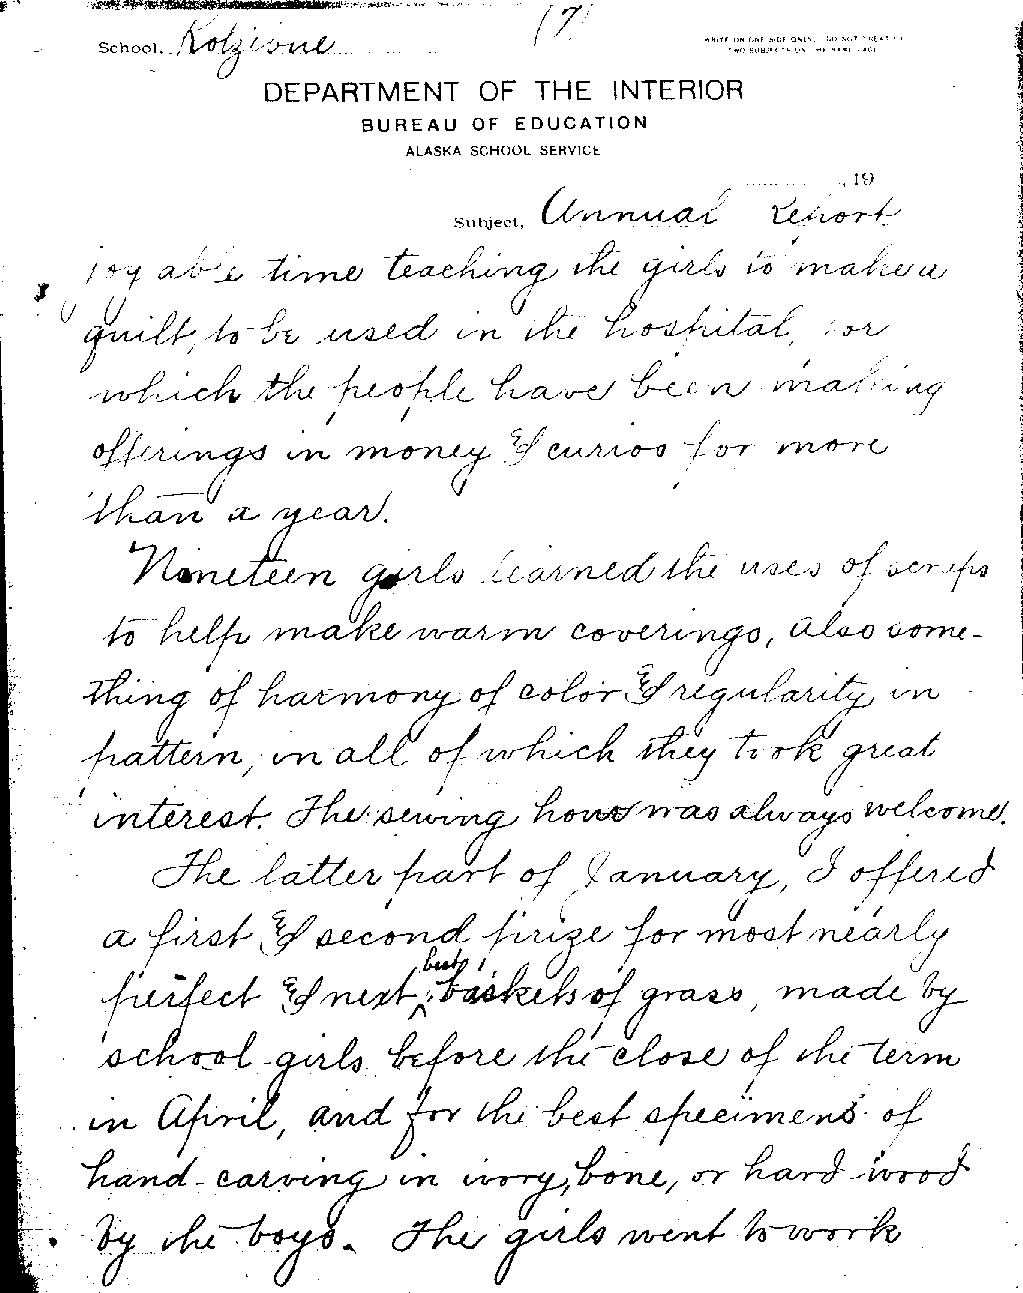 (7)
School, Kotzebue
WRITE ON ONE SIDE ONLY. DO NOT TREAT OF
TWO SUBJECTS ON THE SAME PAGE
DEPARTMENT OF THE INTERIOR
BUREAU OF EDUCATION
ALASKA SCHOOL SERVICE
, 19
Subject, Annual Report
joyable time teaching the girls to make a
quilt, to be used in the hospital, for
which the people have been making
offerings in money & curios for more
than a year.
Nineteen girls learned the uses of scraps
to help make warm coverings, also some-
thing of harmony of color & regularity in
pattern, in all of which they took great
interest. The sewing hour was always welcome.
The latter part of January, I offered
a first & second prize for most nearly
perfect & next best baskets of grass, made by
school girls before the close of the term
in April, and for the best specimens of
hand-carving in ivory, bone, or hard wood
by the boys. The girls went to work